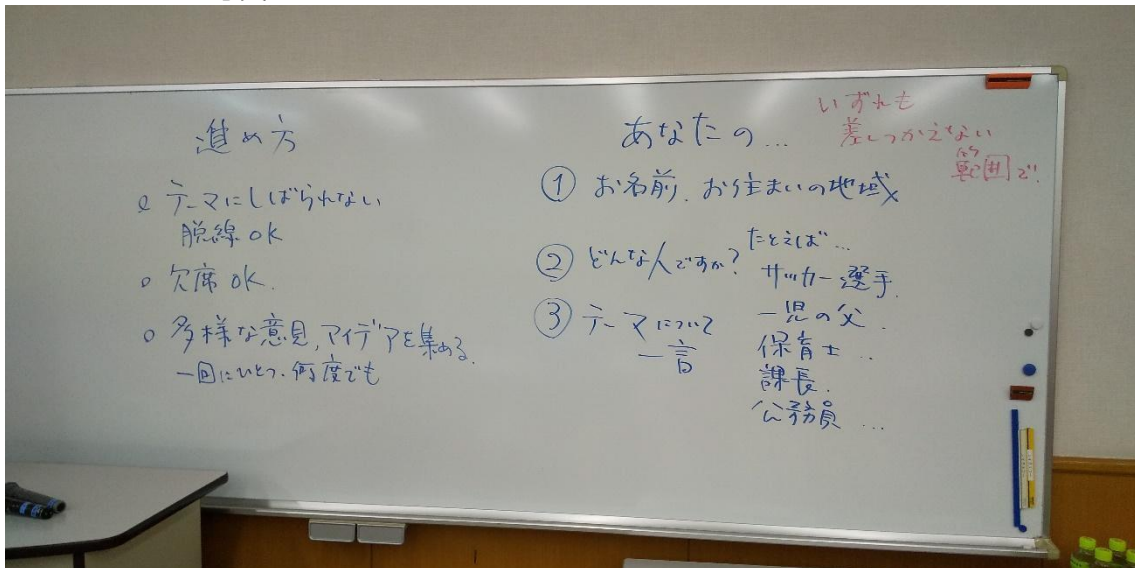 進め方
○ テーマにしばられない
脱線OK
○ 欠席OK.
○ 多様な意見,アイデアを集める.
一回にひとつ.何度でも
あなたの...
いずれも
差しつかえない
範囲で.
① お名前.お住まいの地域
② どんな人ですか?
たとえば...
サッカー選手.
一児の父.
保育士...
課長.
公務員...
③ テーマについて
一言